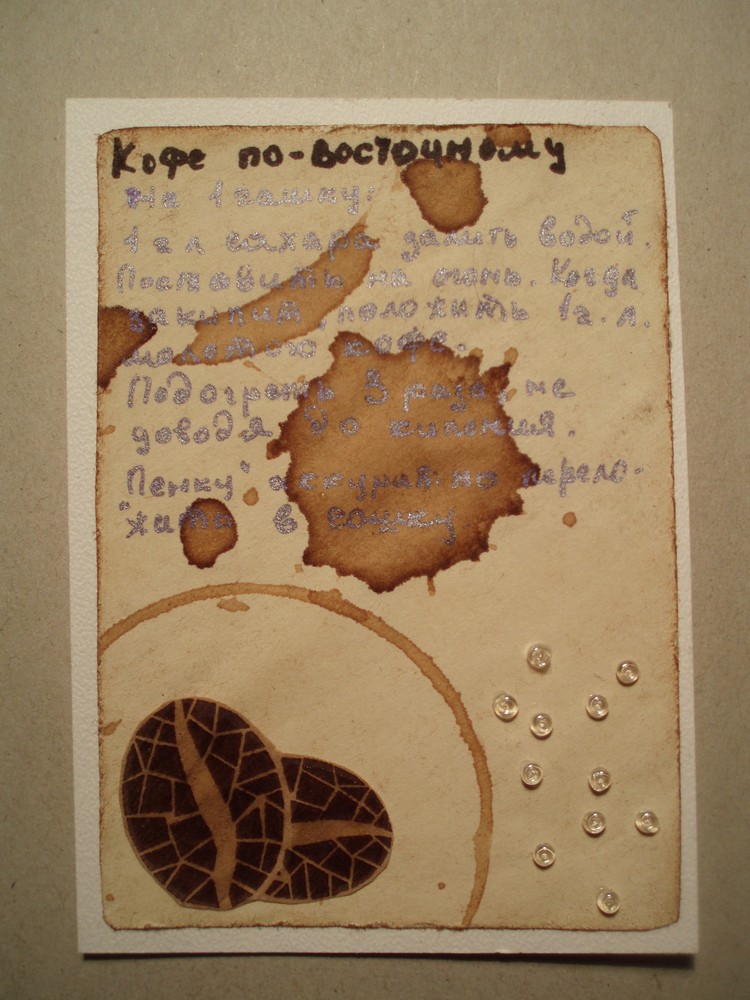 Кофе по-восточному
На 1 чашку:
1 ч л сахара залить водой.
Поставить на огонь. Когда
закипит, положить 1 ч. л.
молотого кофе.
Подогреть 3 раза, не
доводя до кипения.
Пенку аккуратно перело-
жить в чашку.